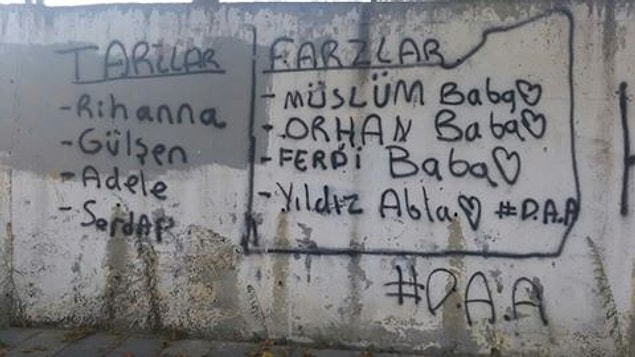 TARZLAR
-Rihanna
-Gülşen
-Adele
-Serdar
FARZLAR
-MÜSLÜM Baba♡
-ORHAN Baba♡
-FERDİ Baba♡
-Yıldız Abla♡ #D.A.A
#D.A.A